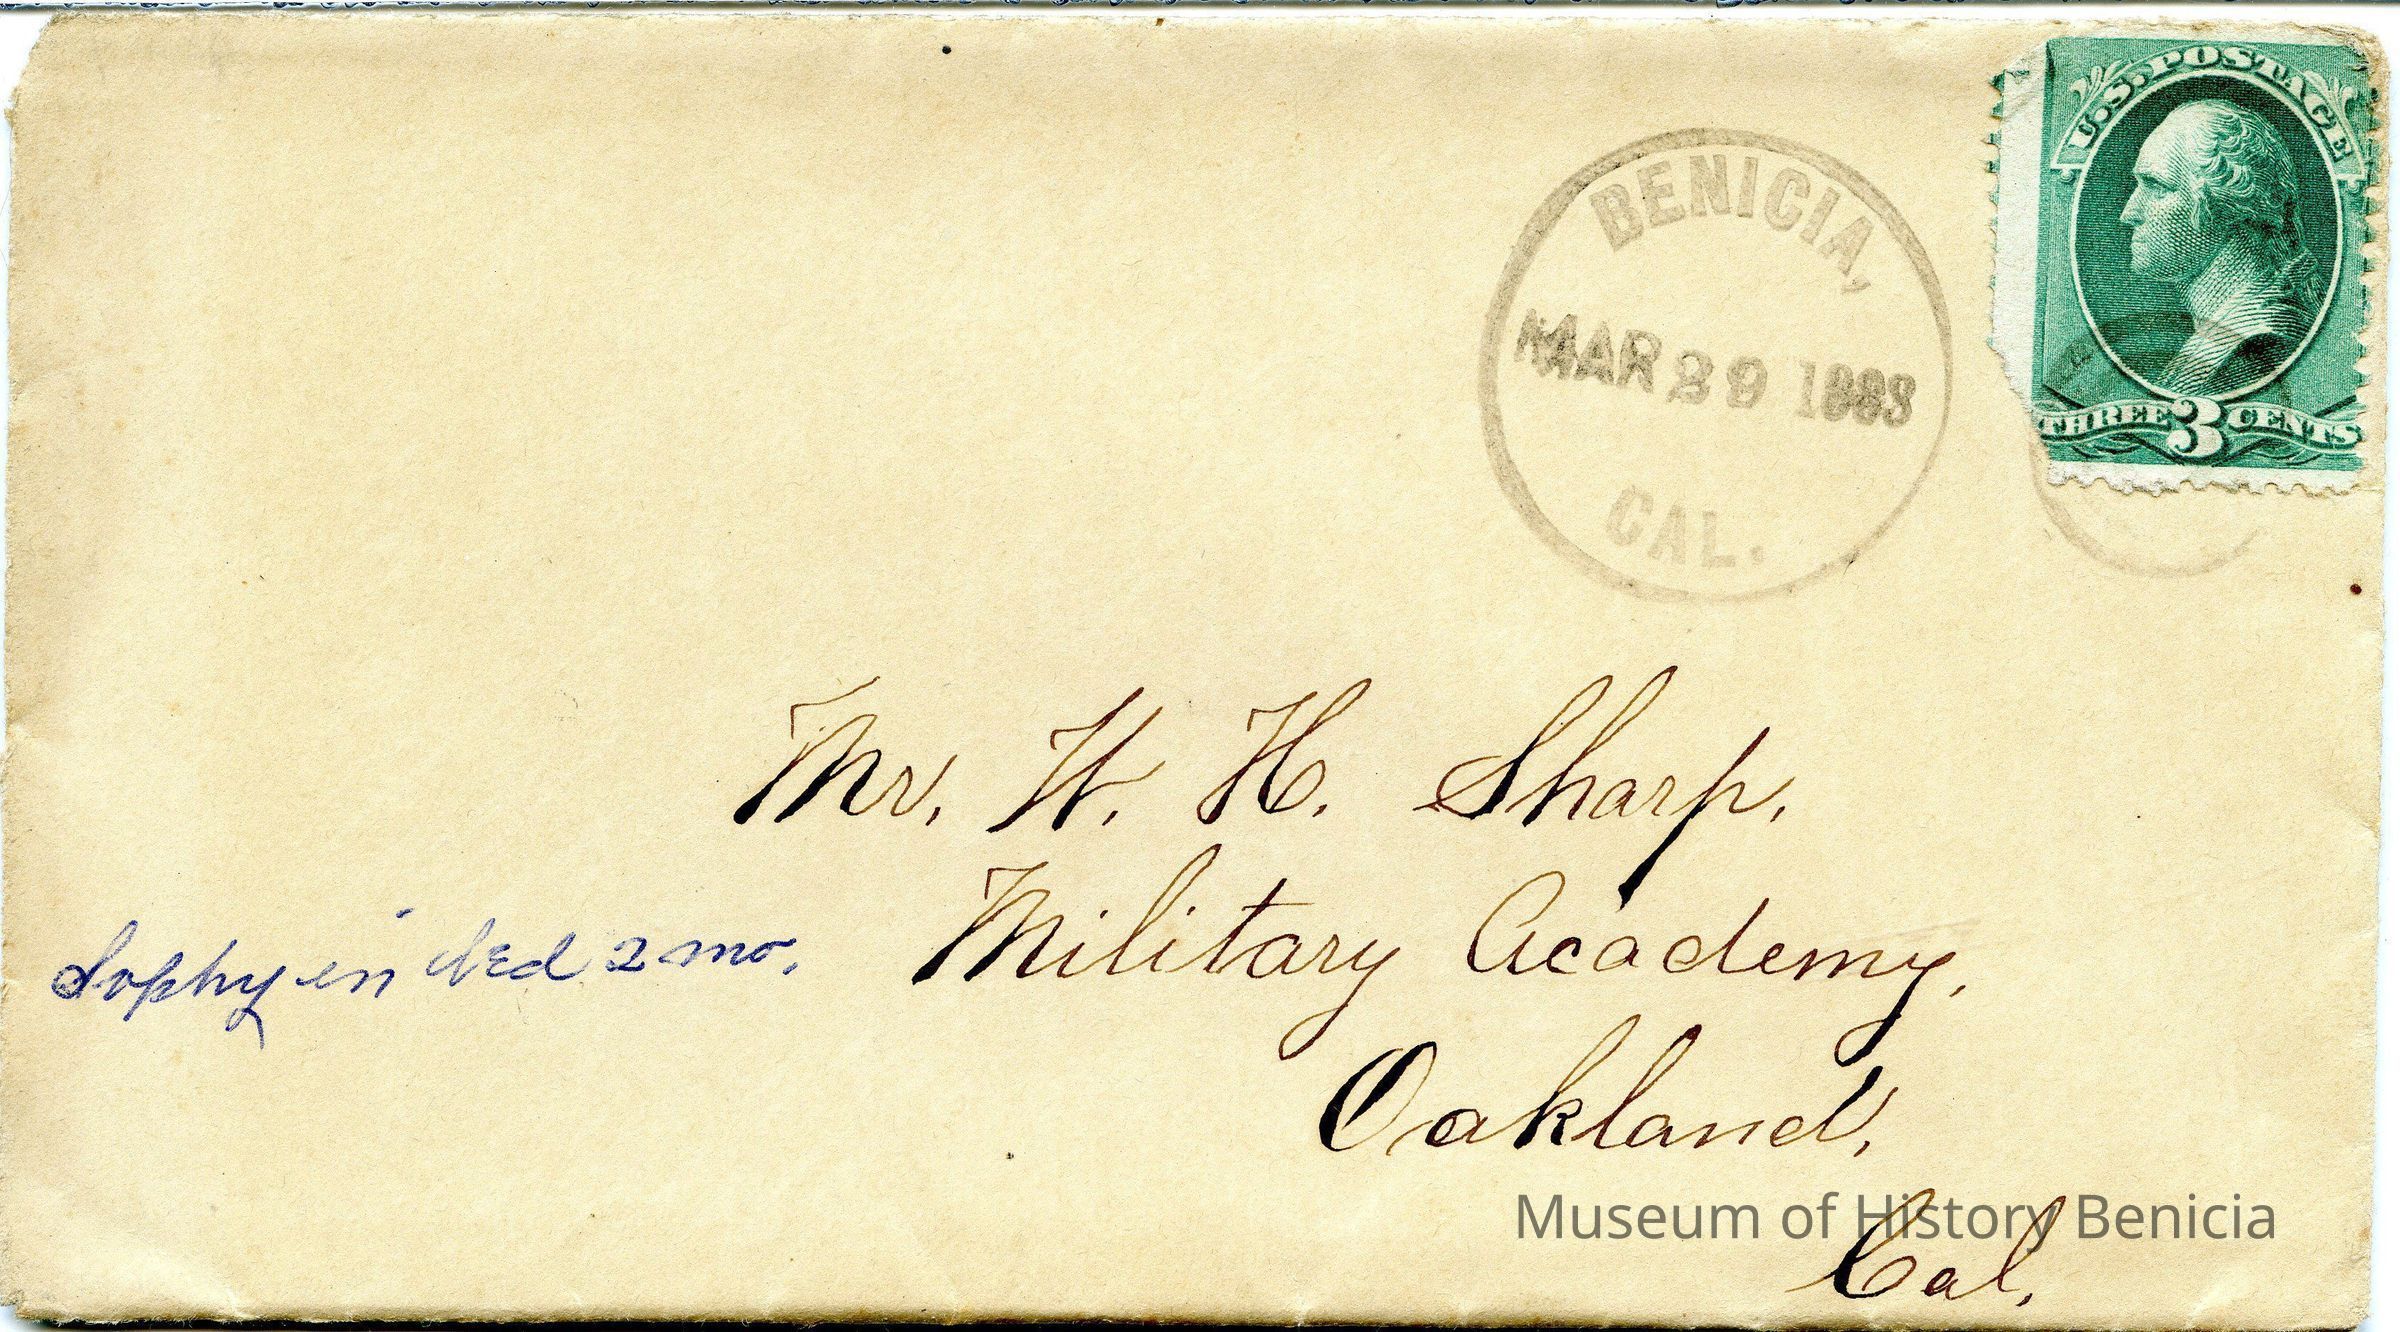 U.S. POSTAGE
THREE 3 CENTS
BENICIA,
MAR 29 1883
CAL.
Mr. W. H. Sharp,
Military Academy,
Oakland,
Cal.
Sophy in bed 2 mo.
Museum of History Benicia